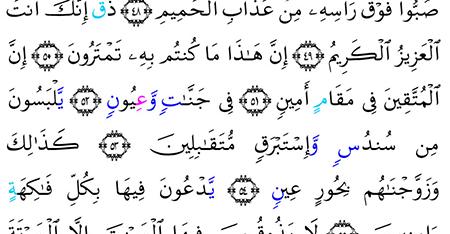 صُبُّوا۟ فَوْقَ رَأْسِهِۦ مِنْ عَذَابِ ٱلْحَمِيمِ ٤٨ ذُقْ إِنَّكَ أَنتَ
ٱلْعَزِيزُ ٱلْكَرِيمُ ٤٩ إِنَّ هَـٰذَا مَا كُنتُم بِهِۦ تَمْتَرُونَ ٥٠ إِنَّ
ٱلْمُتَّقِينَ فِى مَقَامٍ أَمِينٍ ٥١ فِى جَنَّـٰتٍ وَّعِيُونٍ ٥٢ يَّلْبَسُونَ
مِن سُندُسٍ وَّإِسْتَبْرَقٍ مُّتَقَـٰبِلِينَ ٥٣ كَذَٰلِكَ
وَزَوَّجْنَـٰهُم بِحُورٍ عِينٍ ٥٤ يَّدْعُونَ فِيهَا بِكُلِّ فَـٰكِهَةٍ